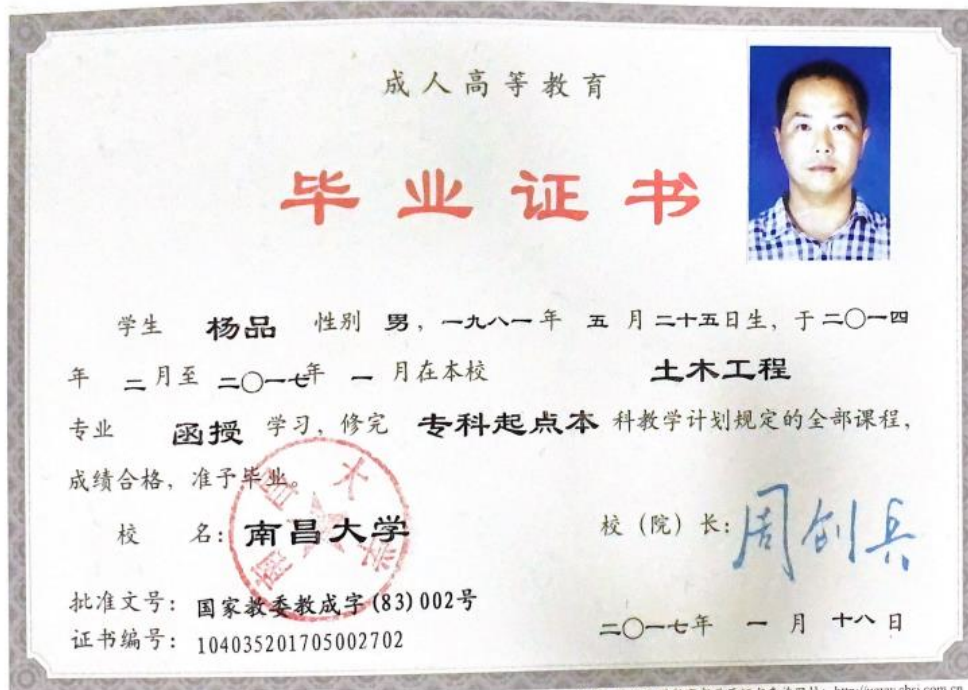 成人高等教育
毕业证书
学生 杨品 性别 男，一九八一年 五 月二十五日生，于二〇一四
年 二月至 二〇一七年 一 月在本校 土木工程
专业 函授 学习，修完 专科起点本 科教学计划规定的全部课程，
成绩合格，准予毕业。
校 名：南昌大学
校（院）长：周创兵
批准文号：国家教委教成字(83)002号
证书编号：104035201705002702
二〇一七年 一 月 十八 日
http://www.chsi.com.cn